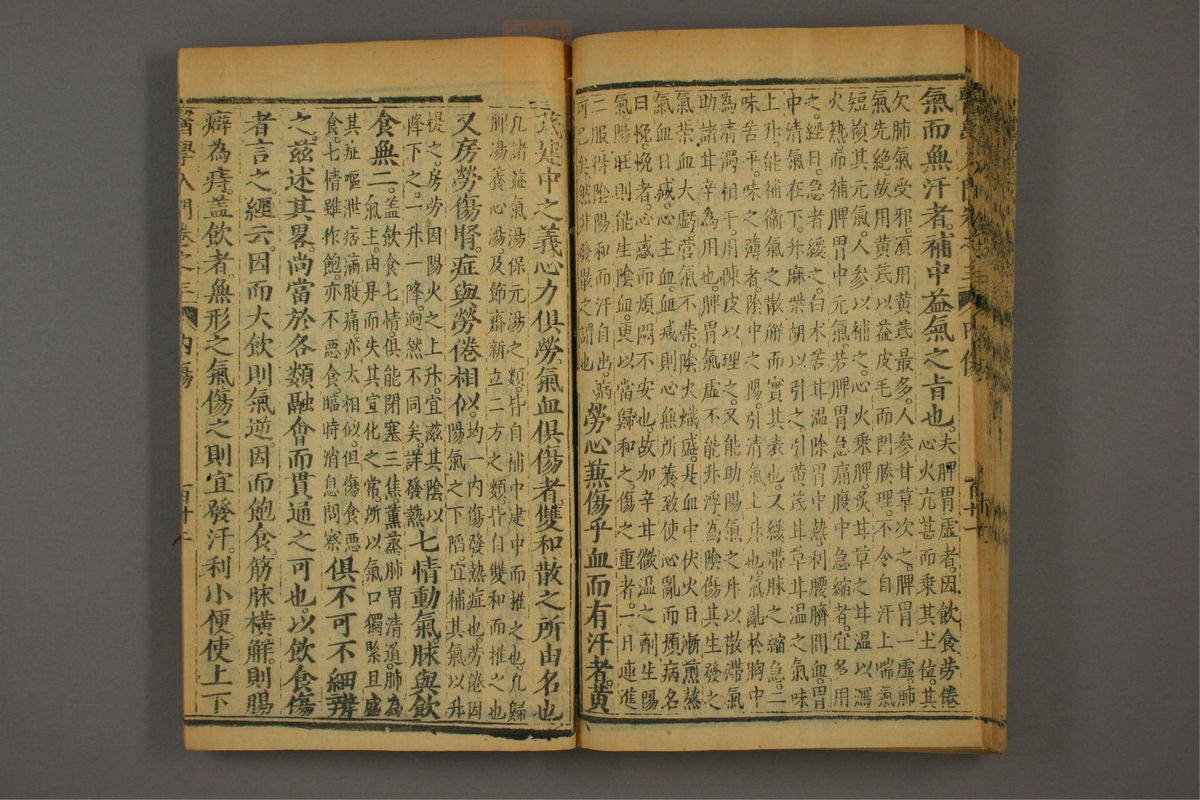 氣而無汗者。補中益氣之旨也。
夫脾胃虛者。因飲食勞倦
心火亢甚而乘其土位。其
次肺氣受邪。須用黃芪最多。人參甘草次之。脾胃一虛。肺
氣先絕故用黃芪以益皮毛而閉腠理。不令自汗上喘氣
短損其元氣。人參以補之。心火乘脾。炙甘草之甘溫以瀉
火熱。而補脾胃中元氣。若脾胃急痛腹中急縮者。宜多用
之。經曰。急者緩之。白朮苦甘溫除胃中熱利腰臍間血。胃
中清氣在下。升麻柴胡以引之。引黃芪甘草甘溫之氣味
上升。能補衛氣之散解而實其表也。又緩帶脉之縮急。二
味苦平。味之薄者。陰中之陽。引清氣上升也。氣亂於胸中
為清濁相干。用陳皮以理之。又能助陽氣之升以散滯氣
助諸甘辛為用也。脾胃氣虛不能升浮為陰傷其生發之
氣榮血大虧。營氣不榮。陰火熾盛。是血中伏火日漸煎熬
氣血日減。心主血。血減則心無所養致使心亂而煩病名
曰悗。悗者。心惑而煩悶不安也。故加辛甘微溫之劑生陽
氣陽旺則能生陰血。更以當歸和之。傷之重者。一日連進
二服得陰陽和而汗自出。病
可已矣。然非發散之謂也
勞心蕪傷乎血而有汗者。黃
芪建中之義心力俱勞氣血俱傷者。雙和散之所由名也
凡諸益氣湯保元湯之類。皆自補中建中而推之也。凡歸
脾湯養心湯及節齋新立二方之類。皆自雙和而推之也
又房勞傷腎。症與勞倦相似。
均一內傷發熱症也。勞倦因
陽氣之下陷。宜補其氣以升
提之。房勞。因陽火之上升。宜滋其陰以
降下之。一升一降。逈然不同矣詳發熱
七情動氣脉與飲
食無二。
蓋飲食七情俱能閉塞三焦。薰蒸肺胃清道。肺為
氣主。由是而失其宣化之常。所以氣口獨緊且盛
其症嘔泄痞滿腹痛。亦太相似。但傷食惡
食。七情雖作飽亦不惡食。臨時消息問察
俱不可不細辨
之。茲述其畧。尚當於各類融會而貫通之可也。以飲食傷
者言之。經云。因而大飲則氣逆。因而飽食。筋脉橫解。則腸
癖為痔。蓋飲者。無形之氣傷之則宜發汗。利小便。使上下
醫學入門卷之三 內傷 百十二